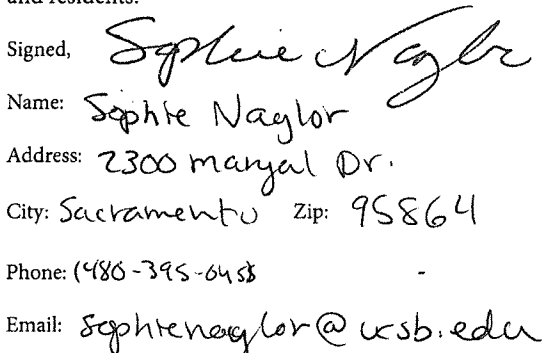 and residents.
Signed, Sophie Naylor
Name: Sophie Naylor
Address: 2300 Maryal Dr.
City: Sacramento Zip: 95864
Phone: (480-395-0458
Email: sophienaylor@ucsb.edu